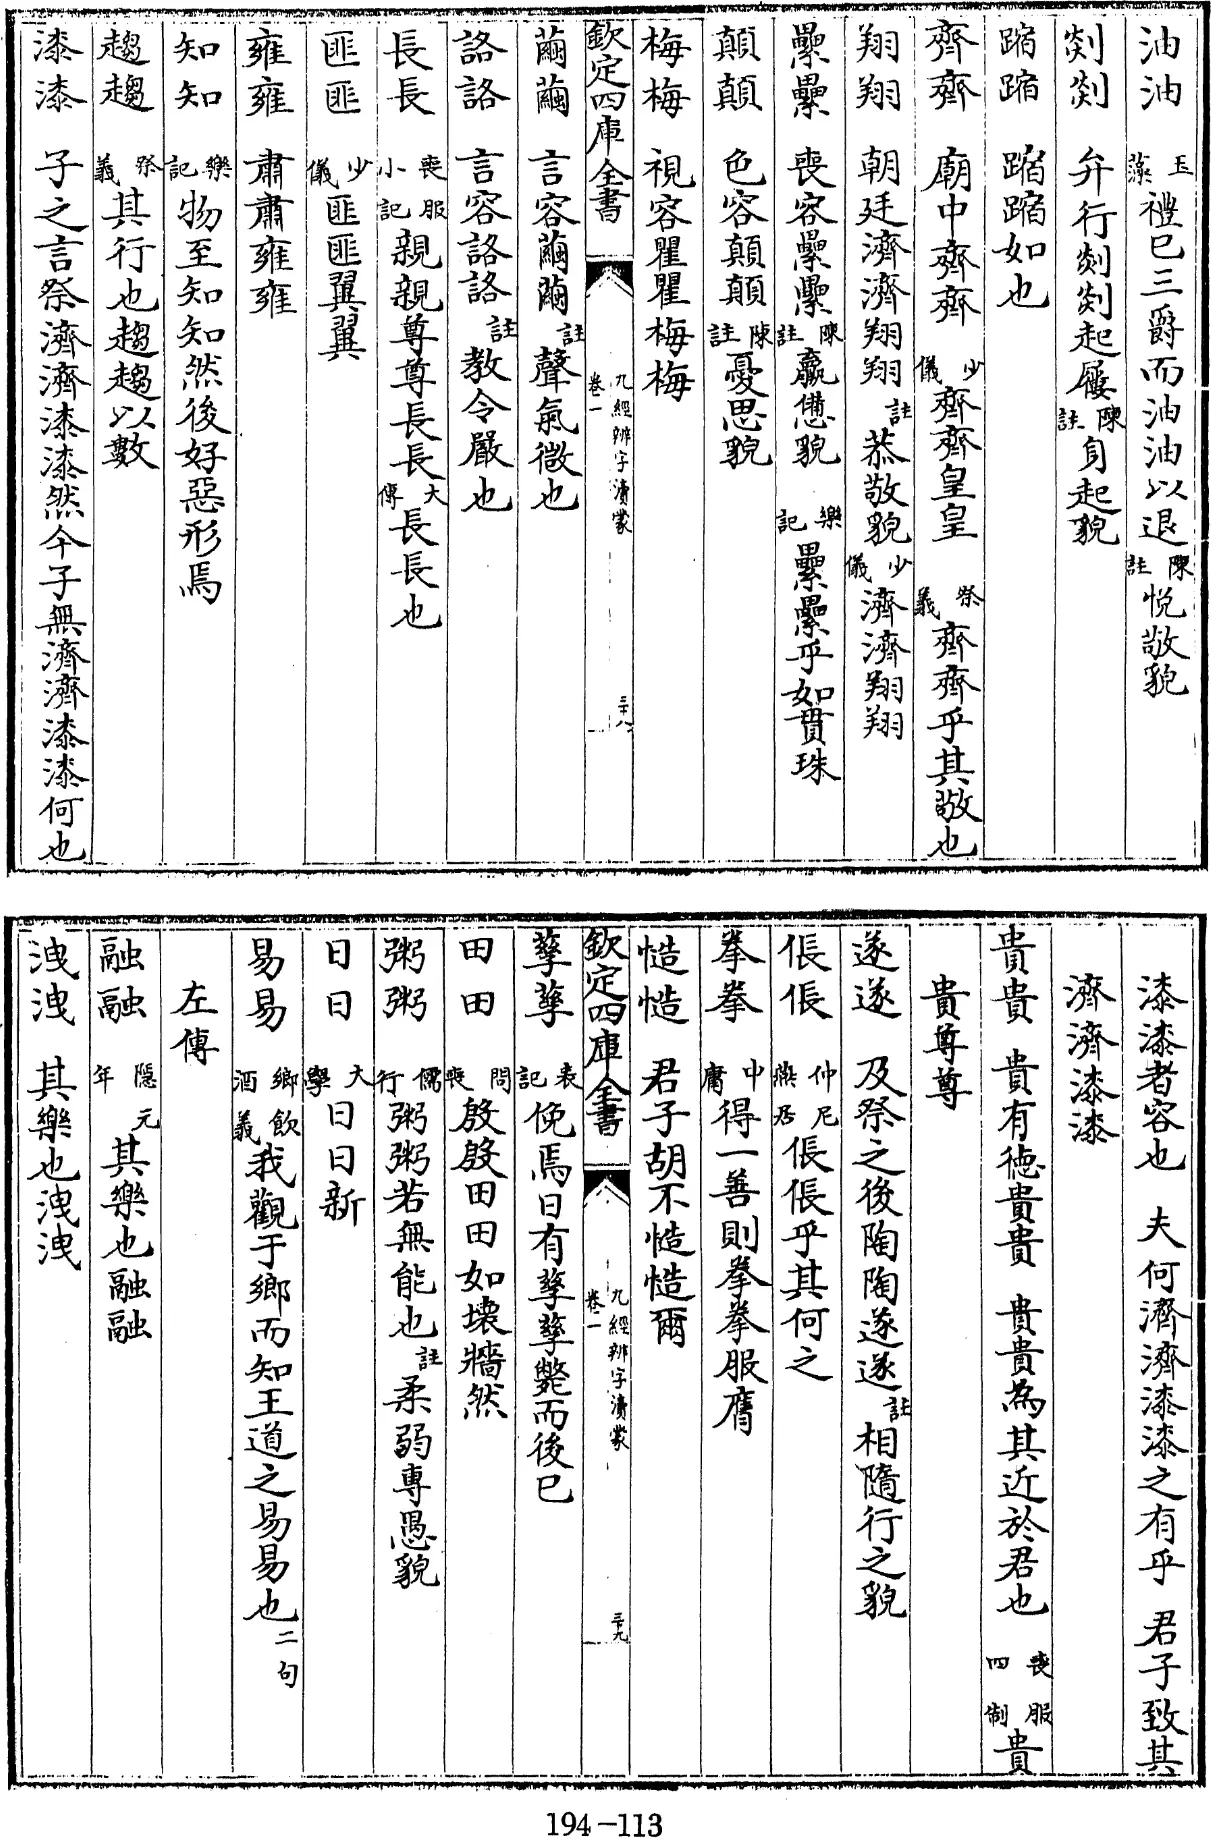 油油　玉藻禮已三爵而油油以退陳註恱敬貌
剡剡　弁行剡剡起屨陳註身起貌
蹜蹜　蹜蹜如也
齊齊　廟中齊齊　少儀齊齊皇皇　祭義齊齊乎其敬也
翔翔　朝廷濟濟翔翔註恭敬貌少儀濟濟翔翔
纍纍　喪容纍纍陳註羸憊貌　樂記纍纍乎如貫珠
顛顛　色容顛顛陳註憂思貌
梅梅　視容瞿瞿梅梅
欽定四庫全書　九經辨字瀆蒙　卷一　三十八
繭繭　言容繭繭註聲氣微也
詻詻　言容詻詻註教令嚴也
長長　喪服小記親親尊尊長長大傳長長也
匪匪　少儀匪匪翼翼
雍雍　肅肅雍雍
知知　樂記物至知知然後好惡形焉
趨趨　祭義其行也趨趨以數
漆漆　子之言祭濟濟漆漆然今子無濟濟漆漆何也
漆漆者容也　夫何濟濟漆漆之有乎　君子致其
濟濟漆漆
貴貴　貴有徳貴貴　貴貴為其近於君也　喪服四制貴
貴尊尊
遂遂　及祭之後陶陶遂遂註相隨行之貌
倀倀　仲尼燕居倀倀乎其何之
拳拳　中庸得一善則拳拳服膺
慥慥　君子胡不慥慥爾
欽定四庫全書　九經辨字瀆蒙　卷一　三十九
孳孳　表記俛焉日有孳孳斃而後已
田田　問喪殷殷田田如壊牆然
粥粥　儒行粥粥若無能也註柔弱專愚貌
日日　大學日日新
易易　鄉飲酒義我觀于鄉而知王道之易易也二句
左傳
融融　隱元年其樂也融融
洩洩　其樂也洩洩
194-113